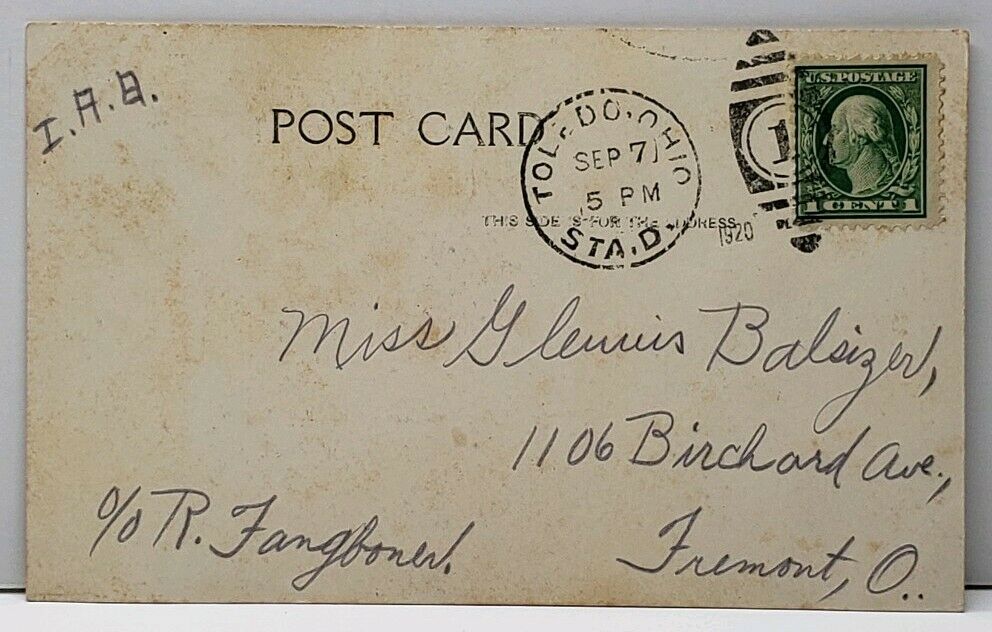 I.A.B.
POST CARD
THIS SIDE IS FOR THE ADDRESS
TOLEDO, OHIO
SEP 7
5 PM
STA. D.
1920
1
U.S. POSTAGE
1 CENT 1
Miss Glennis Balsizer,
1106 Birchard Ave.,
Fremont, O..
c/o R. Fangboner.